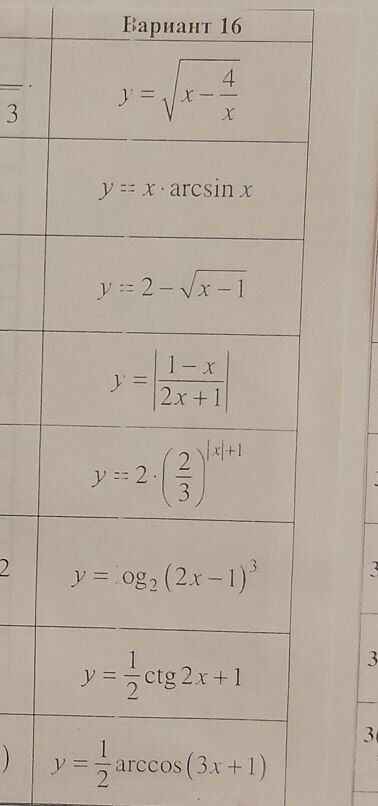 Вариант 16
3
y = √(x − 4/x)
y = x · arcsin x
y = 2 − √(x − 1)
y = |(1 − x)/(2x + 1)|
y = 2 · (2/3)^(|x|+1)
2
y = og₂ (2x − 1)³
y = 1/2 ctg 2x + 1
) y = 1/2 arccos (3x + 1)
3
3
3